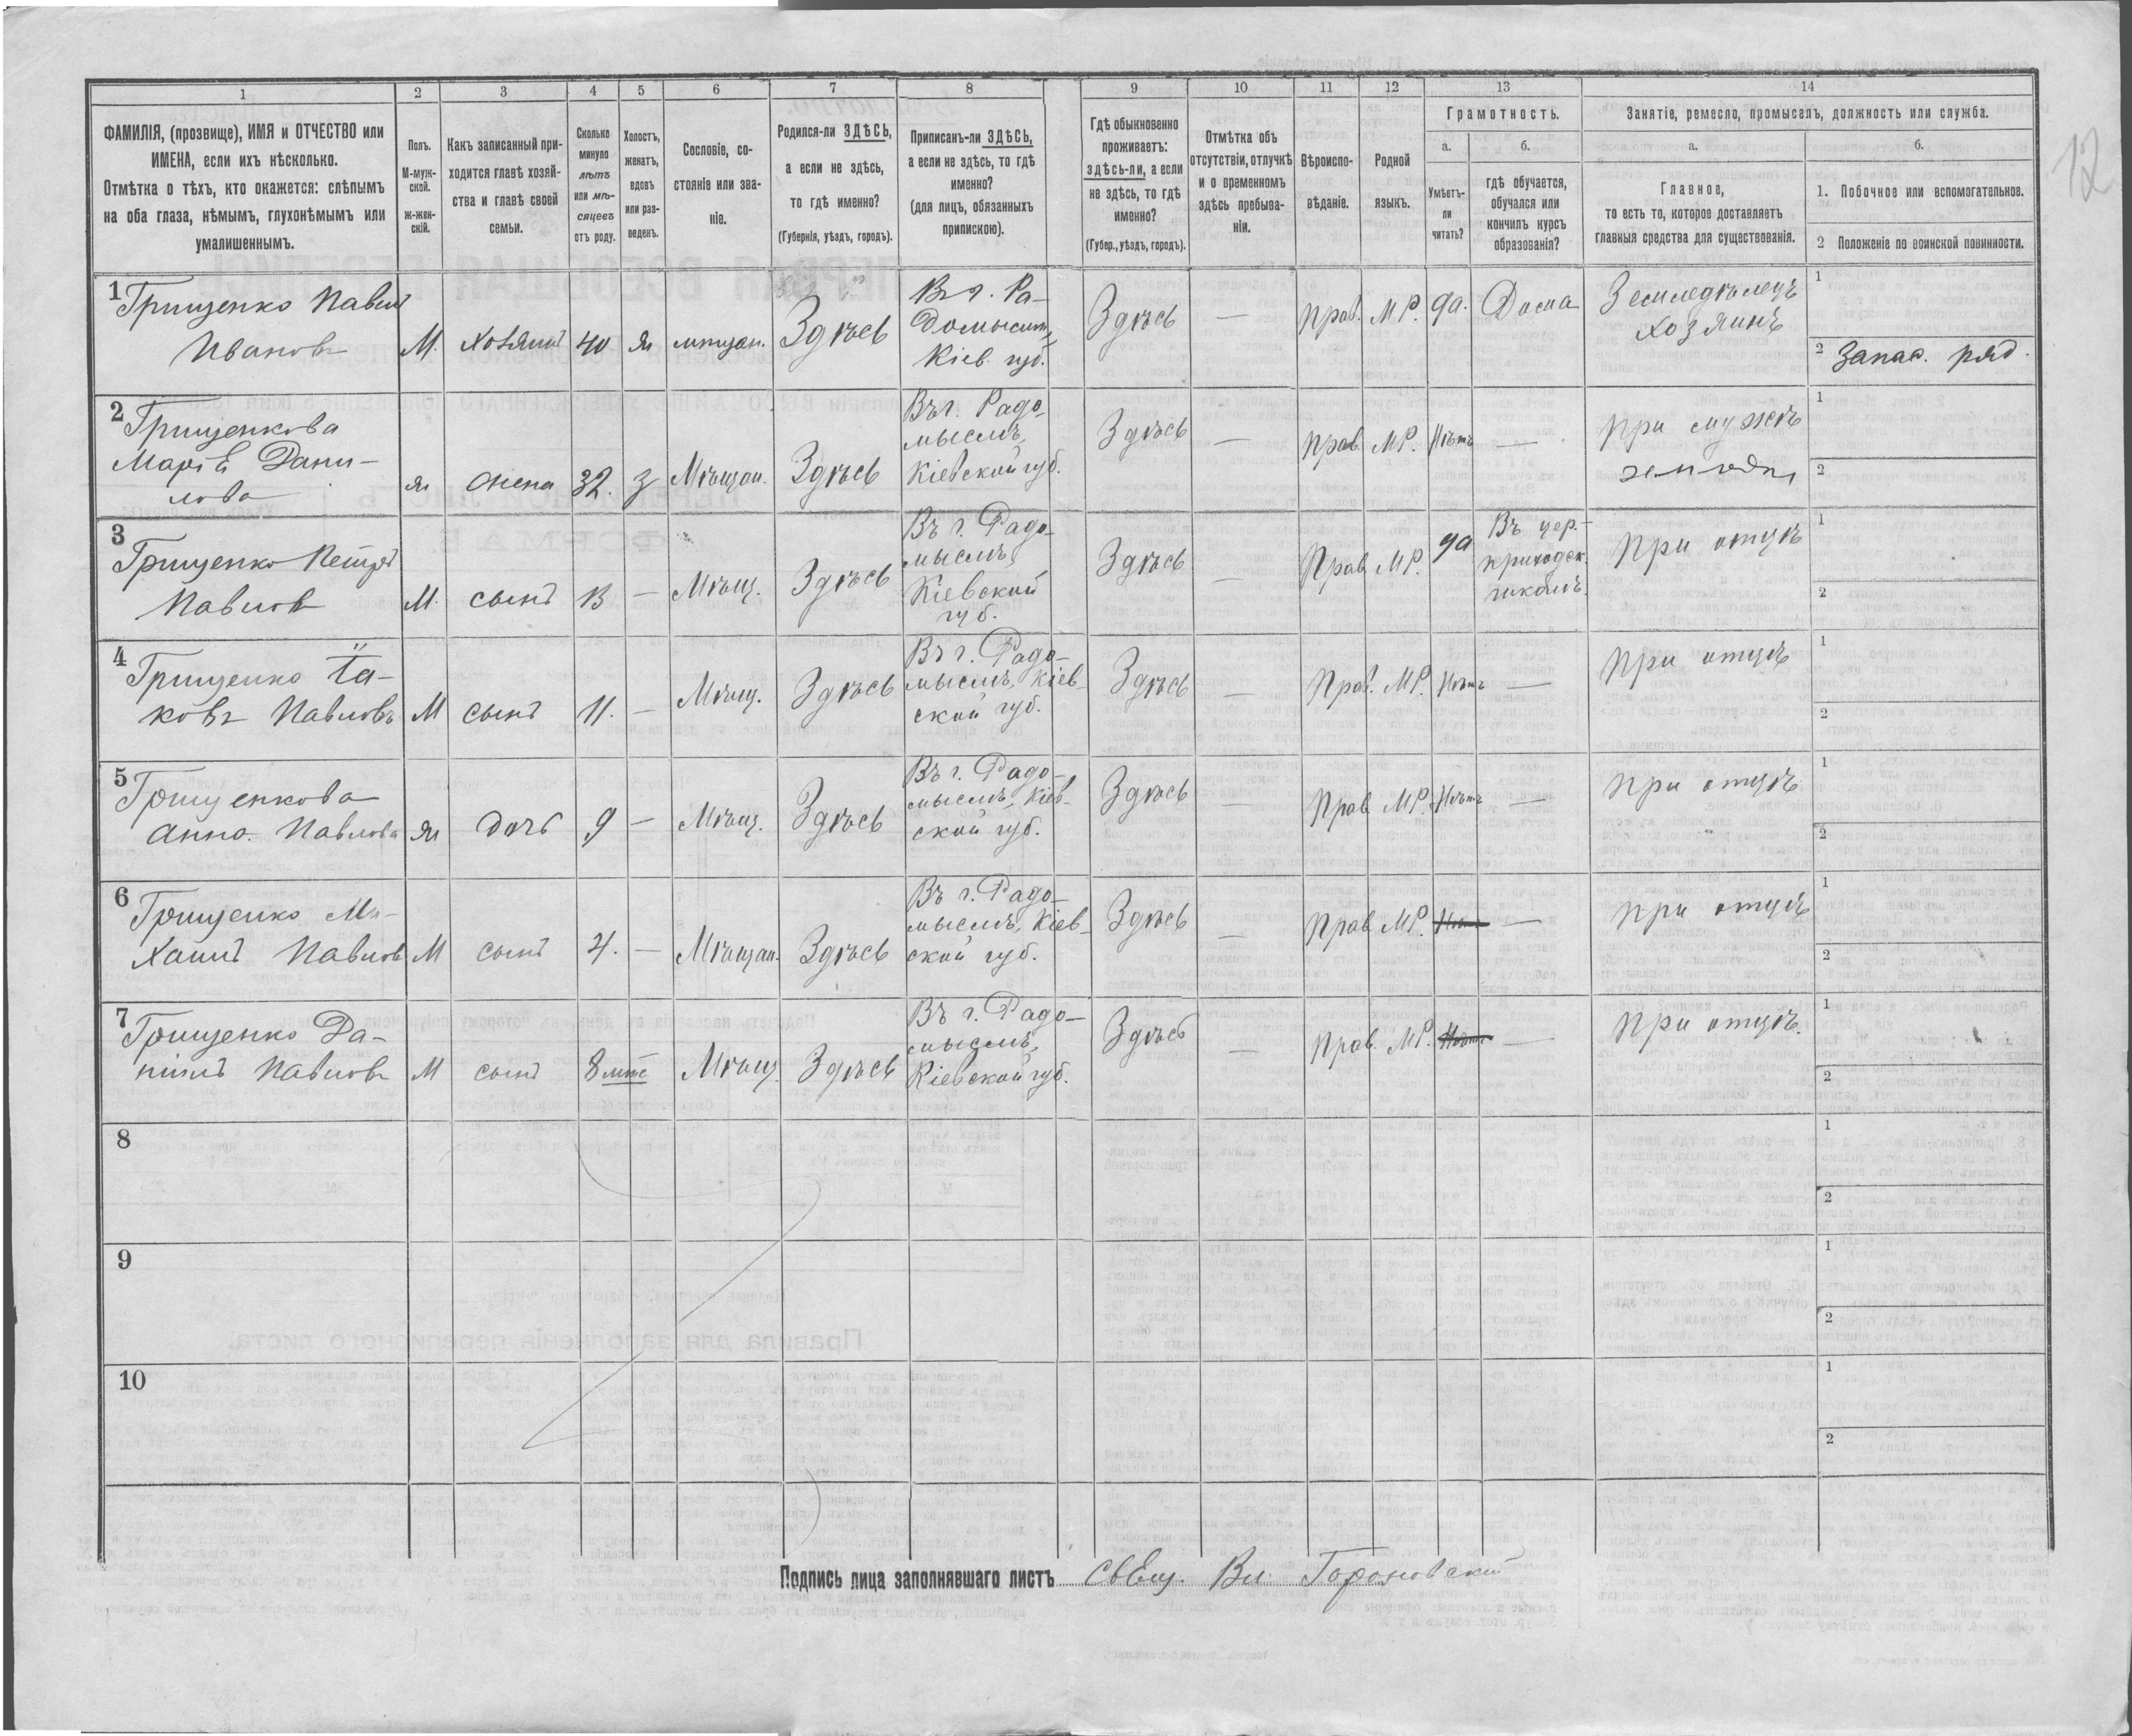 1 2 3 4 5 6 7 8 9 10 11 12 13 14
ФАМИЛІЯ, (прозвище), ИМЯ и ОТЧЕСТВО или
ИМЕНА, если ихъ нѣсколько.
Отмѣтка о тѣхъ, кто окажется: слѣпымъ
на оба глаза, нѣмымъ, глухонѣмымъ или
умалишеннымъ.
Полъ.
М-муж-
ской.
ж-жен-
скій.
Какъ записанный при-
ходится главѣ хозяй-
ства и главѣ своей
семьи.
Сколько
минуло
лѣтъ
или мѣ-
сяцевъ
отъ роду.
Холостъ,
женатъ,
вдовъ
или раз-
веденъ.
Сословіе, со-
стояніе или зва-
ніе.
Родился-ли ЗДѢСЬ,
а если не здѣсь,
то гдѣ именно?
(Губернія, уѣздъ, городъ).
Приписанъ-ли ЗДѢСЬ,
а если не здѣсь, то гдѣ
именно?
(для лицъ, обязанныхъ
припискою).
Гдѣ обыкновенно
проживаетъ:
здѣсь-ли, а если
не здѣсь, то гдѣ
именно?
(Губер., уѣздъ, городъ).
Отмѣтка объ
отсутствіи, отлучкѣ
и о временномъ
здѣсь пребыва-
ніи.
Вѣроиспо-
вѣданіе.
Родной
языкъ.
Грамотность.
а.
Умѣетъ-
ли
читать?
б.
гдѣ обучается,
обучался или
кончилъ курсъ
образованія?
Занятіе, ремесло, промыселъ, должность или служба.
а.
Главное,
то есть то, которое доставляетъ
главныя средства для существованія.
б.
1. Побочное или вспомогательное.
2 Положеніе по воинской повинности.
12
1 Грищенко Павелъ
Ивановъ
М. хозяинъ 40 ж мѣщан. Здѣсь
Въ г. Ра-
домыслѣ,
Кіев. губ.
Здѣсь — Прав. МР. да. Дома
Земледѣлецъ
хозяинъ
1
2 Запас. ряд.
2 Грищенкова
Марія Дани-
лова
ж жена 32. з Мѣщан. Здѣсь
Въ г. Радо-
мыслѣ,
Кіевской губ.
Здѣсь — Прав. МР. Нѣтъ —
При мужѣ
1
2
3 Грищенко Петръ
Павловъ
М. сынъ 13 — Мѣщ. Здѣсь
Въ г. Радо-
мыслѣ,
Кіевской
губ.
Здѣсь — Прав. МР. да
Въ цер.-
приходск.
школѣ.
При отцѣ
1
2
4 Грищенко Іа-
ковъ Павловъ
М сынъ 11. — Мѣщ. Здѣсь
Въ г. Радо-
мыслѣ, Кіев-
ской губ.
Здѣсь — Прав. МР. Нѣтъ —
При отцѣ
1
2
5 Грищенкова
Анна Павлова
ж дочь 9 — Мѣщ. Здѣсь
Въ г. Радо-
мыслѣ, Кіев-
ской губ.
Здѣсь — Прав. МР. Нѣтъ —
При отцѣ
1
2
6 Грищенко Ми-
хаилъ Павловъ
М сынъ 4. — Мѣщан. Здѣсь
Въ г. Радо-
мыслѣ, Кіев-
ской губ.
Здѣсь — Прав. МР. Нѣтъ —
При отцѣ
1
2
7 Грищенко Да-
ніилъ Павловъ
М сынъ 8 мѣс Мѣщ. Здѣсь
Въ г. Радо-
мыслѣ,
Кіевской губ.
Здѣсь — Прав. МР. Нѣтъ —
При отцѣ.
1
2
8
1
2
9
1
2
10
1
2
Подпись лица заполнявшаго листъ Свящ. Вл.